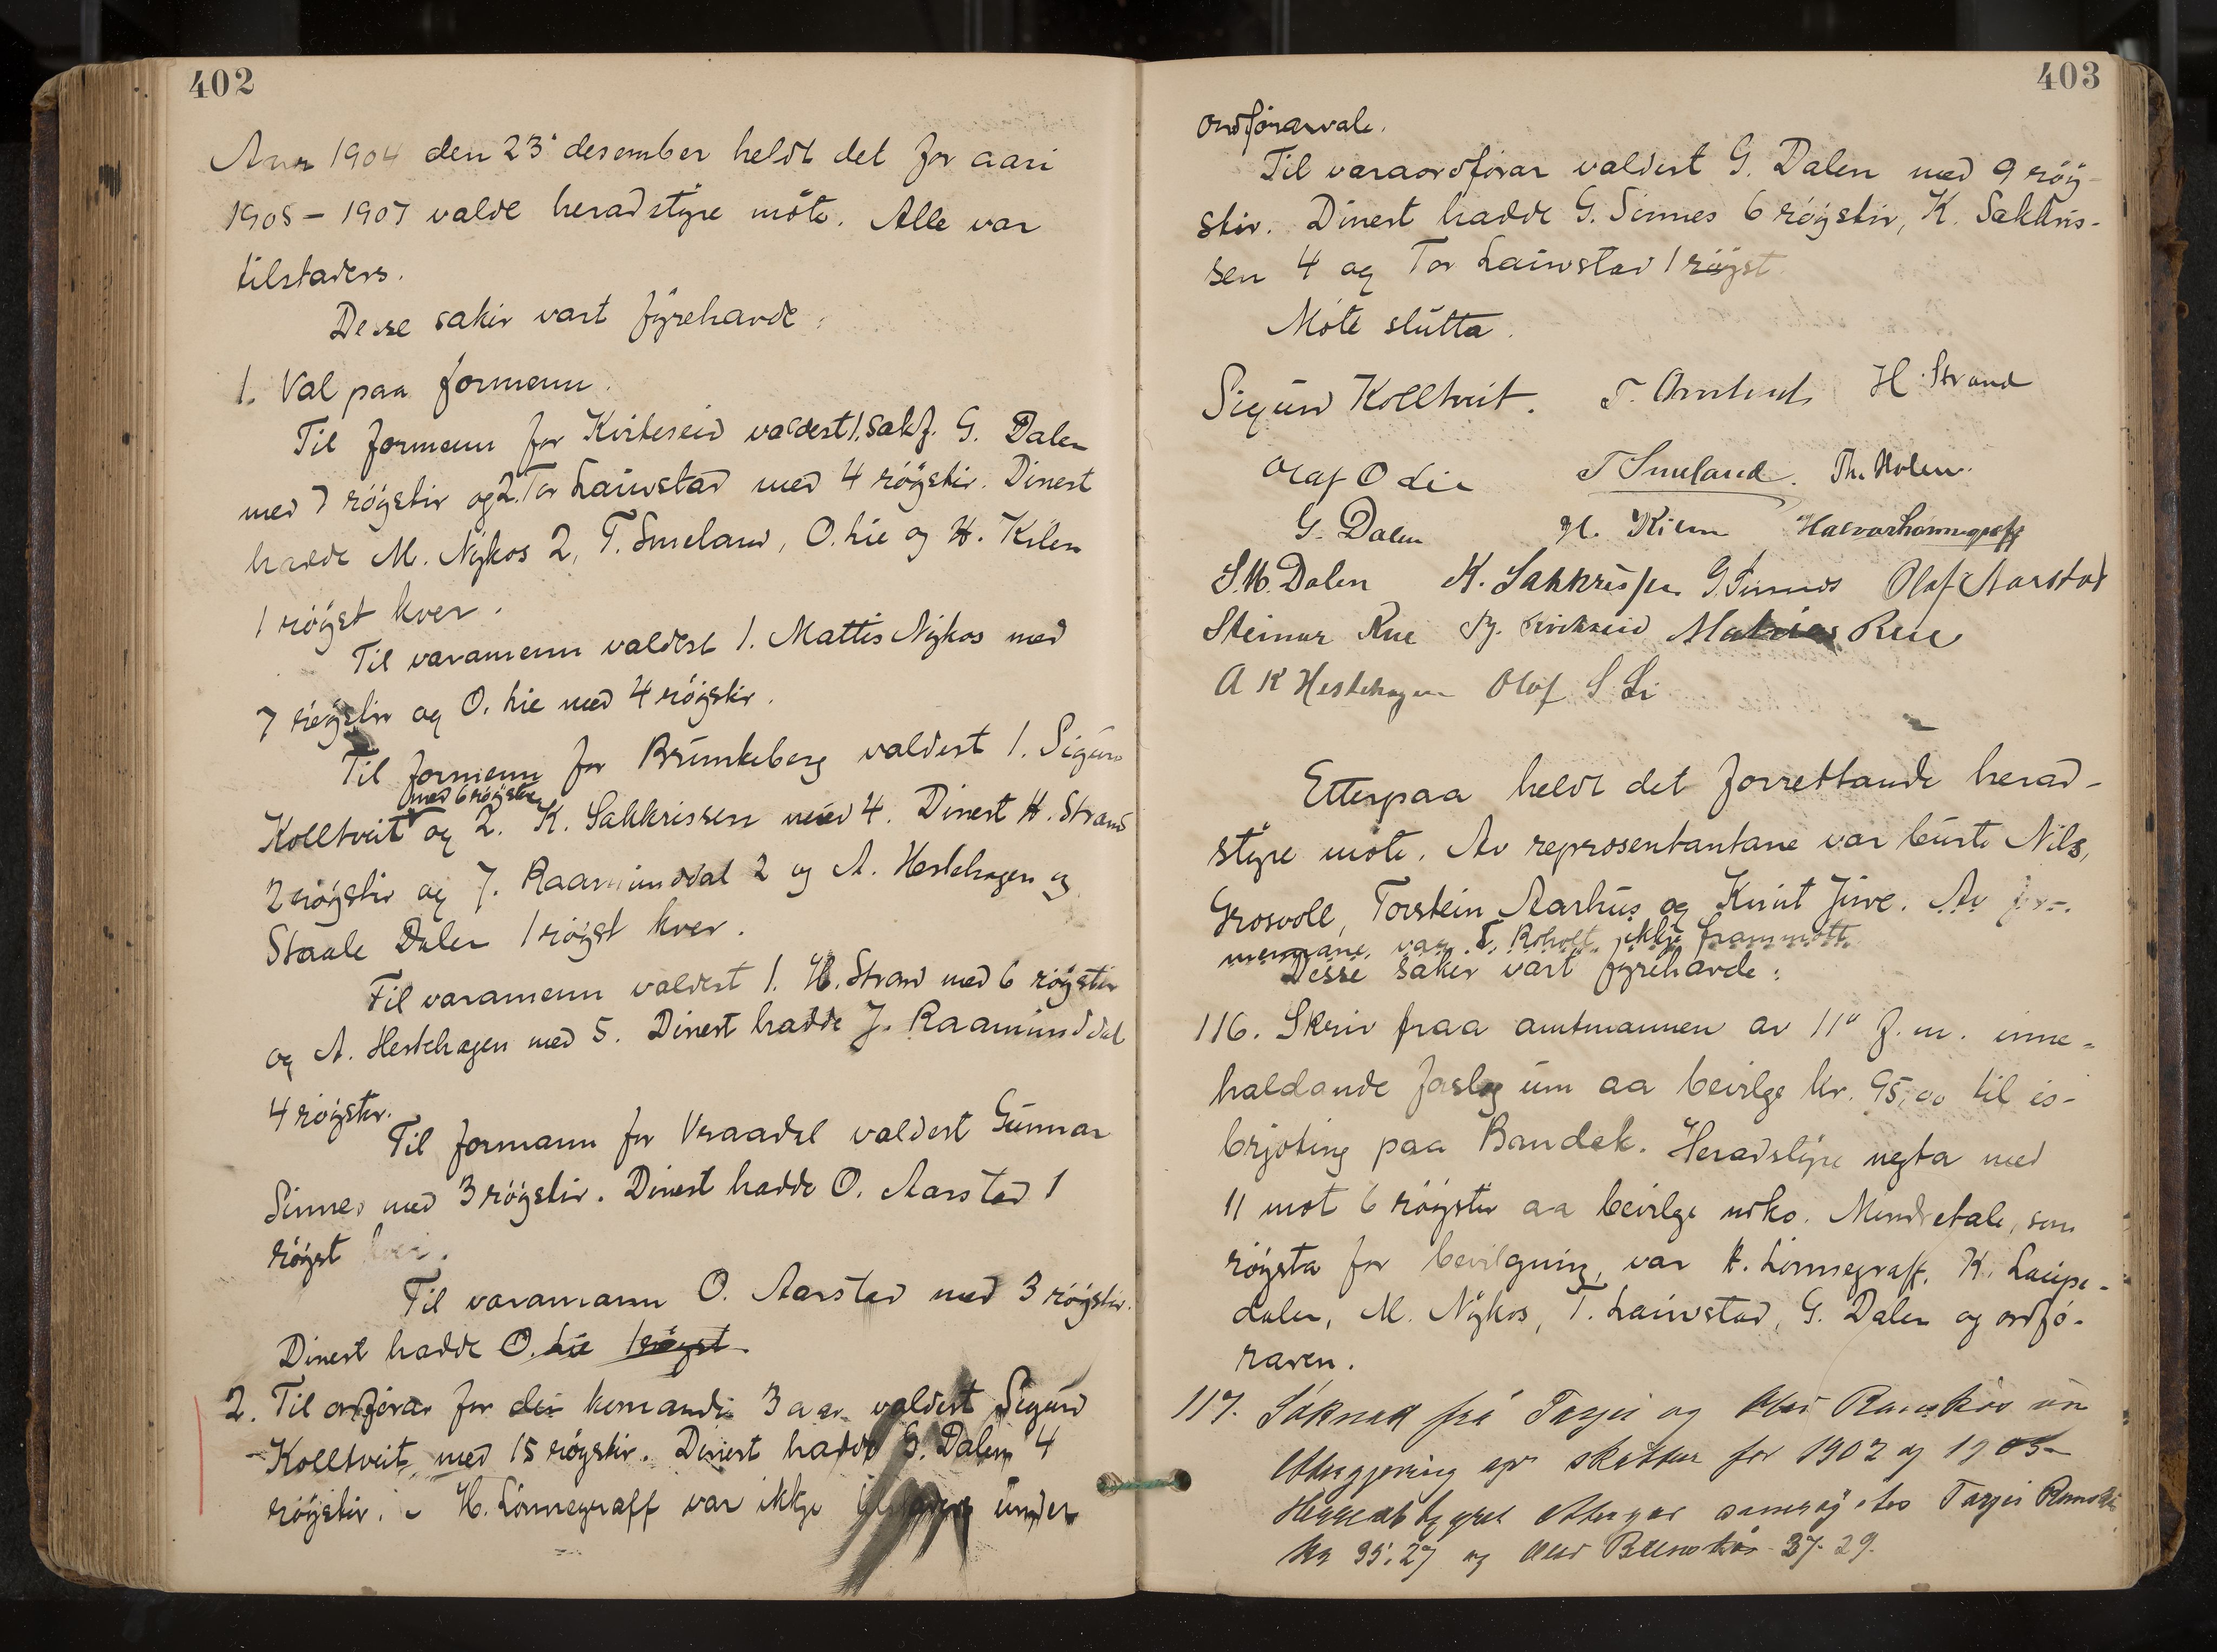 402
Aar 1904 den 23' desember heldt det for aari
1905 - 1907 valde heradstyre möte. Alle var
tilstaders.
Desse sakir vart fyrehavde:
1. Val paa formenn.
Til formenn for Kviteseid valdest 1. sakf. G. Dalen
med 7 röystir og 2. Tor Lauvstad med 4 röystir. Dinest
hadde M. Nykos 2, T. Smeland, O. Lie og H. Kilen
1 röyst kver.
Til varamenn valdest 1. Mattis Nykos med
7 röystir og O. Lie med 4 röystir.
Til formenn for Brunkeberg valdest 1. Sigurd
med 6 röystir
Kolltveit og 2. K. Sakkrissen med 4. Dinest H. Strand
2 röystir og J. Raamunddal 2 og A. Hestehagen og
Staale Dalen 1 röyst kver.
Til varamenn valdest 1. H. Strand med 6 röystir
og A. Hestehagen med 5. Dinest hadde J. Raamunddal
4 röystir.
Til formann for Vraadal valdest Gunnar
Sinnes med 3 röystir. Dinest hadde O. Aarstad 1
röyst kver.
Til varamann O. Aarstad med 3 röystir.
Dinest hadde O. Lie 1 röyst.
2. Til ordförar for dei komande 3 aar valdest Sigurd
Kolltveit med 15 röystir. Dinest hadde G. Dalen 4
röystir. - H. Lönnegraff var ikkje under
403
ordförarvale.
Til varaordförar valdest G. Dalen med 9 röy-
stir. Dinest hadde G. Sinnes 6 röystir, K. Sakkris-
sen 4 og Tor Lauvstad 1 röyst.
Möte slutta.
Sigurd Kolltveit. T. Omlid H. Strand
Olaf O Lie T Smeland. Th. Holen.
G. Dalen H. Kilen Halvor Lönnegraff
S. M. Dalen K. Sakkrissen G. Sinnes Olaf Aarstad
Steinar Rue Kviteseid Matias Rue
A K Hestehagen Olaf S Li
Etterpaa heldt det forrettande herad-
styre möte. Av representantane var burte Nils,
Grosvoll, Torstein Aarhus og Knut Juve. Av for-
mennane var T. Roholt ikkje frammött.
Desse sakir vart fyrehavde:
116. Skriv fraa amtmannen av 11' f. m. inne-
haldande forslag um aa bevilge kr. 95,00 til is-
brjoting paa Bandak. Heradstyre negta med
11 mot 6 röystir aa bevilge noko. Mindretale, som
röysta for bevilgning, var H. Lönnegraff, K. Laupe-
dalen, M. Nykos, T. Lauvstad, G. Dalen og ordfö-
raren.
117. Söknad frå Tarjei og Olav um
ettergjeving av skatten for 1902 og 1903
Heradstyret ettergav Tarjei
kr 35,27 og Olav 37.29.